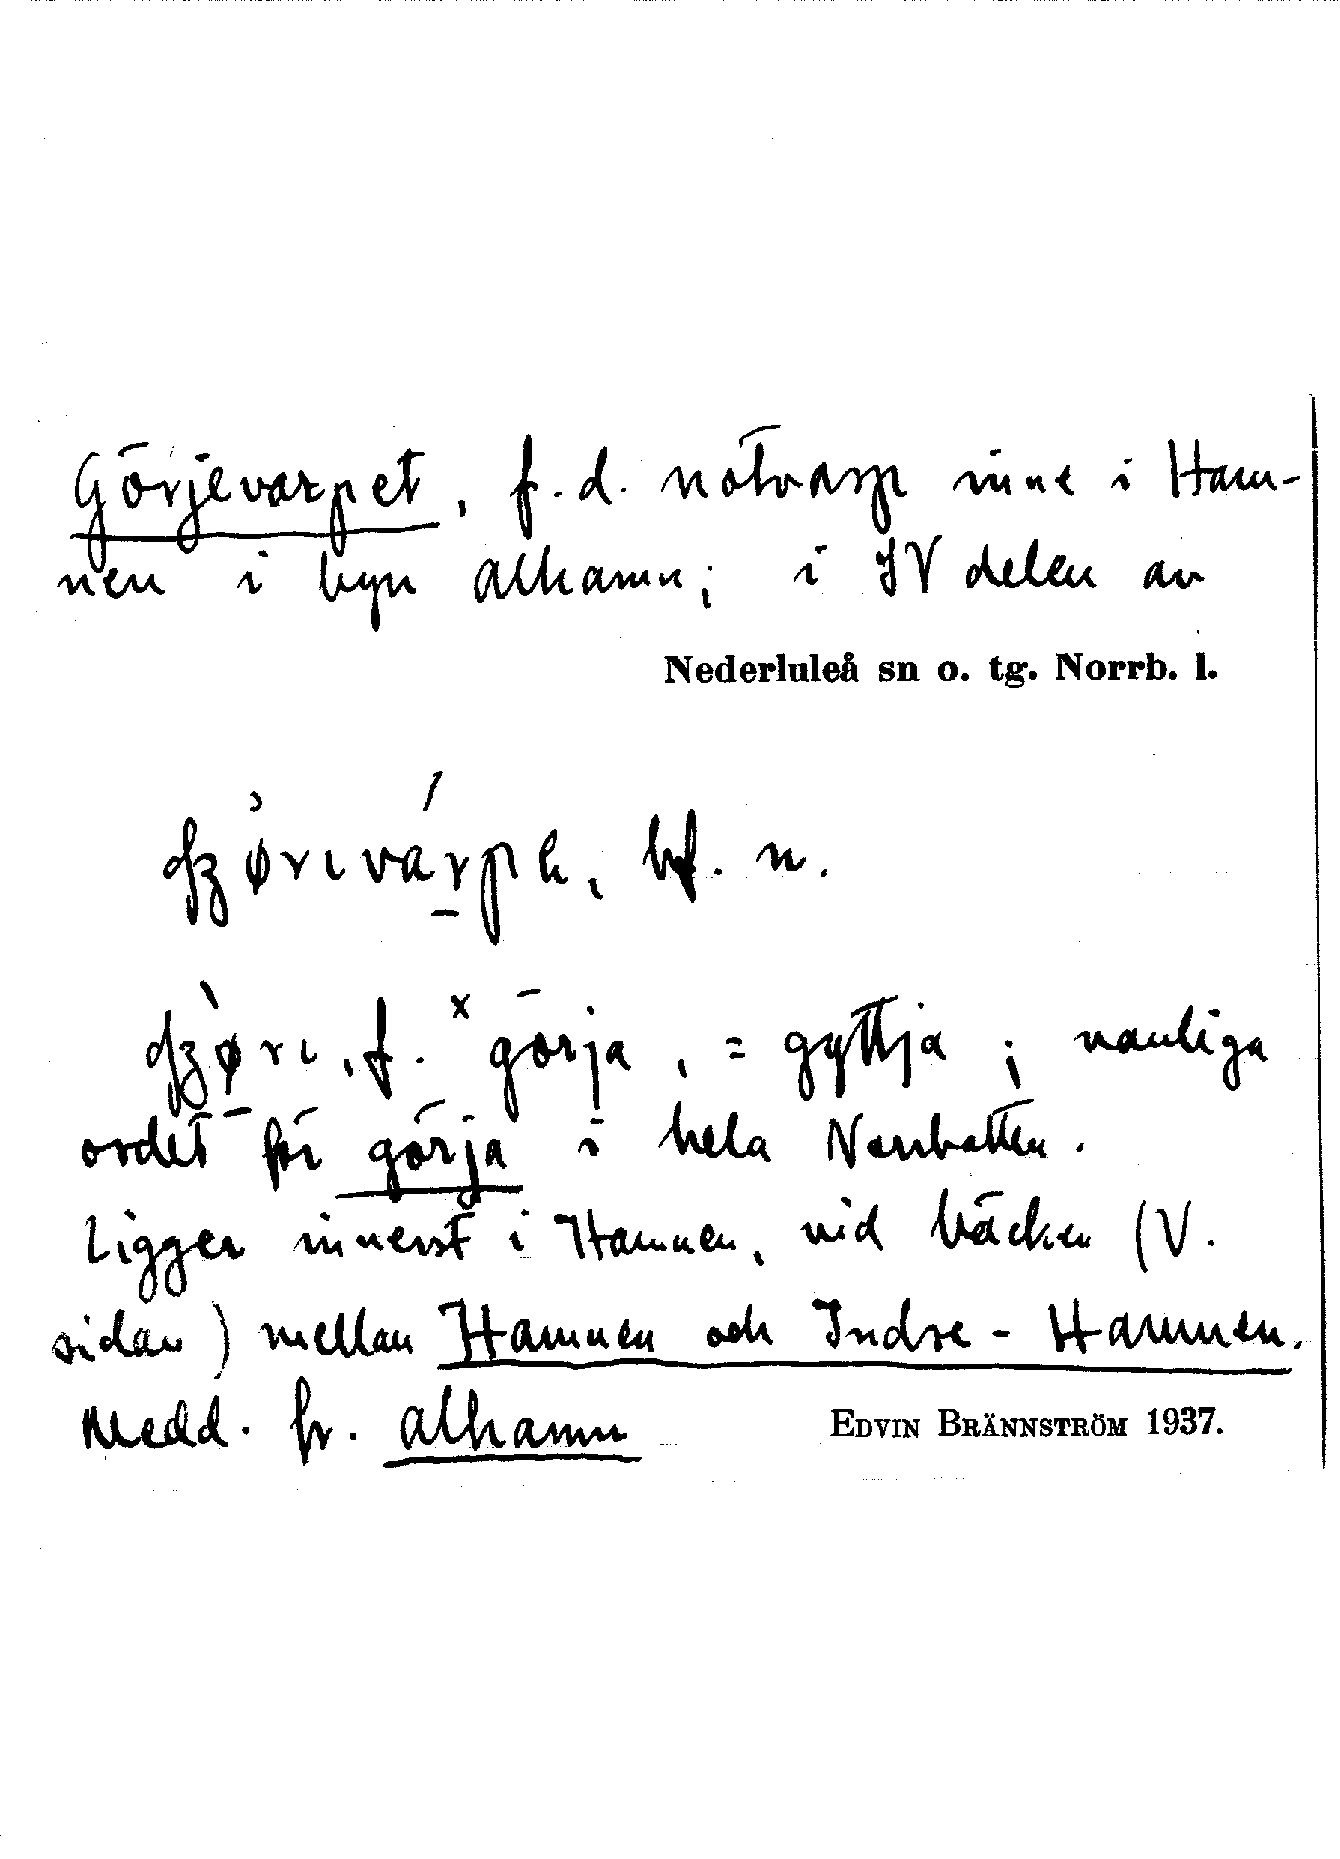 Görjevarpet, f.d. notvarp inne i Ham-
nen i byn Alhamn; i SV delen av
Nederluleå sn o. tg. Norrb. l.
bf. n.
f. × görja, = gyttja; vanliga
ordet för görja i hela Norrbotten.
Ligger innerst i Hamnen, vid bäcken (V.
sidan) mellan Hamnen och Indre-Hamnen.
Medd. fr. Alhamn EDVIN BRÄNNSTRÖM 1937.